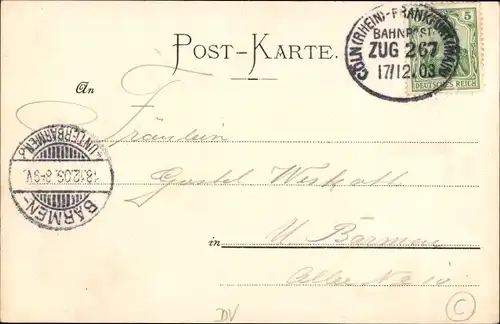 CÖLN (RHEIN)-FRANKFURT (MAIN)
BAHNPOST
ZUG 267
17/12.03
5
DEUTSCHES REICH
POST-KARTE.
An
Fräulein
Gustel
in U. Barmen
Allee No 14
BARMEN-
18.12.03. 8-9V.
(UNTERBARMEN)
DV
C